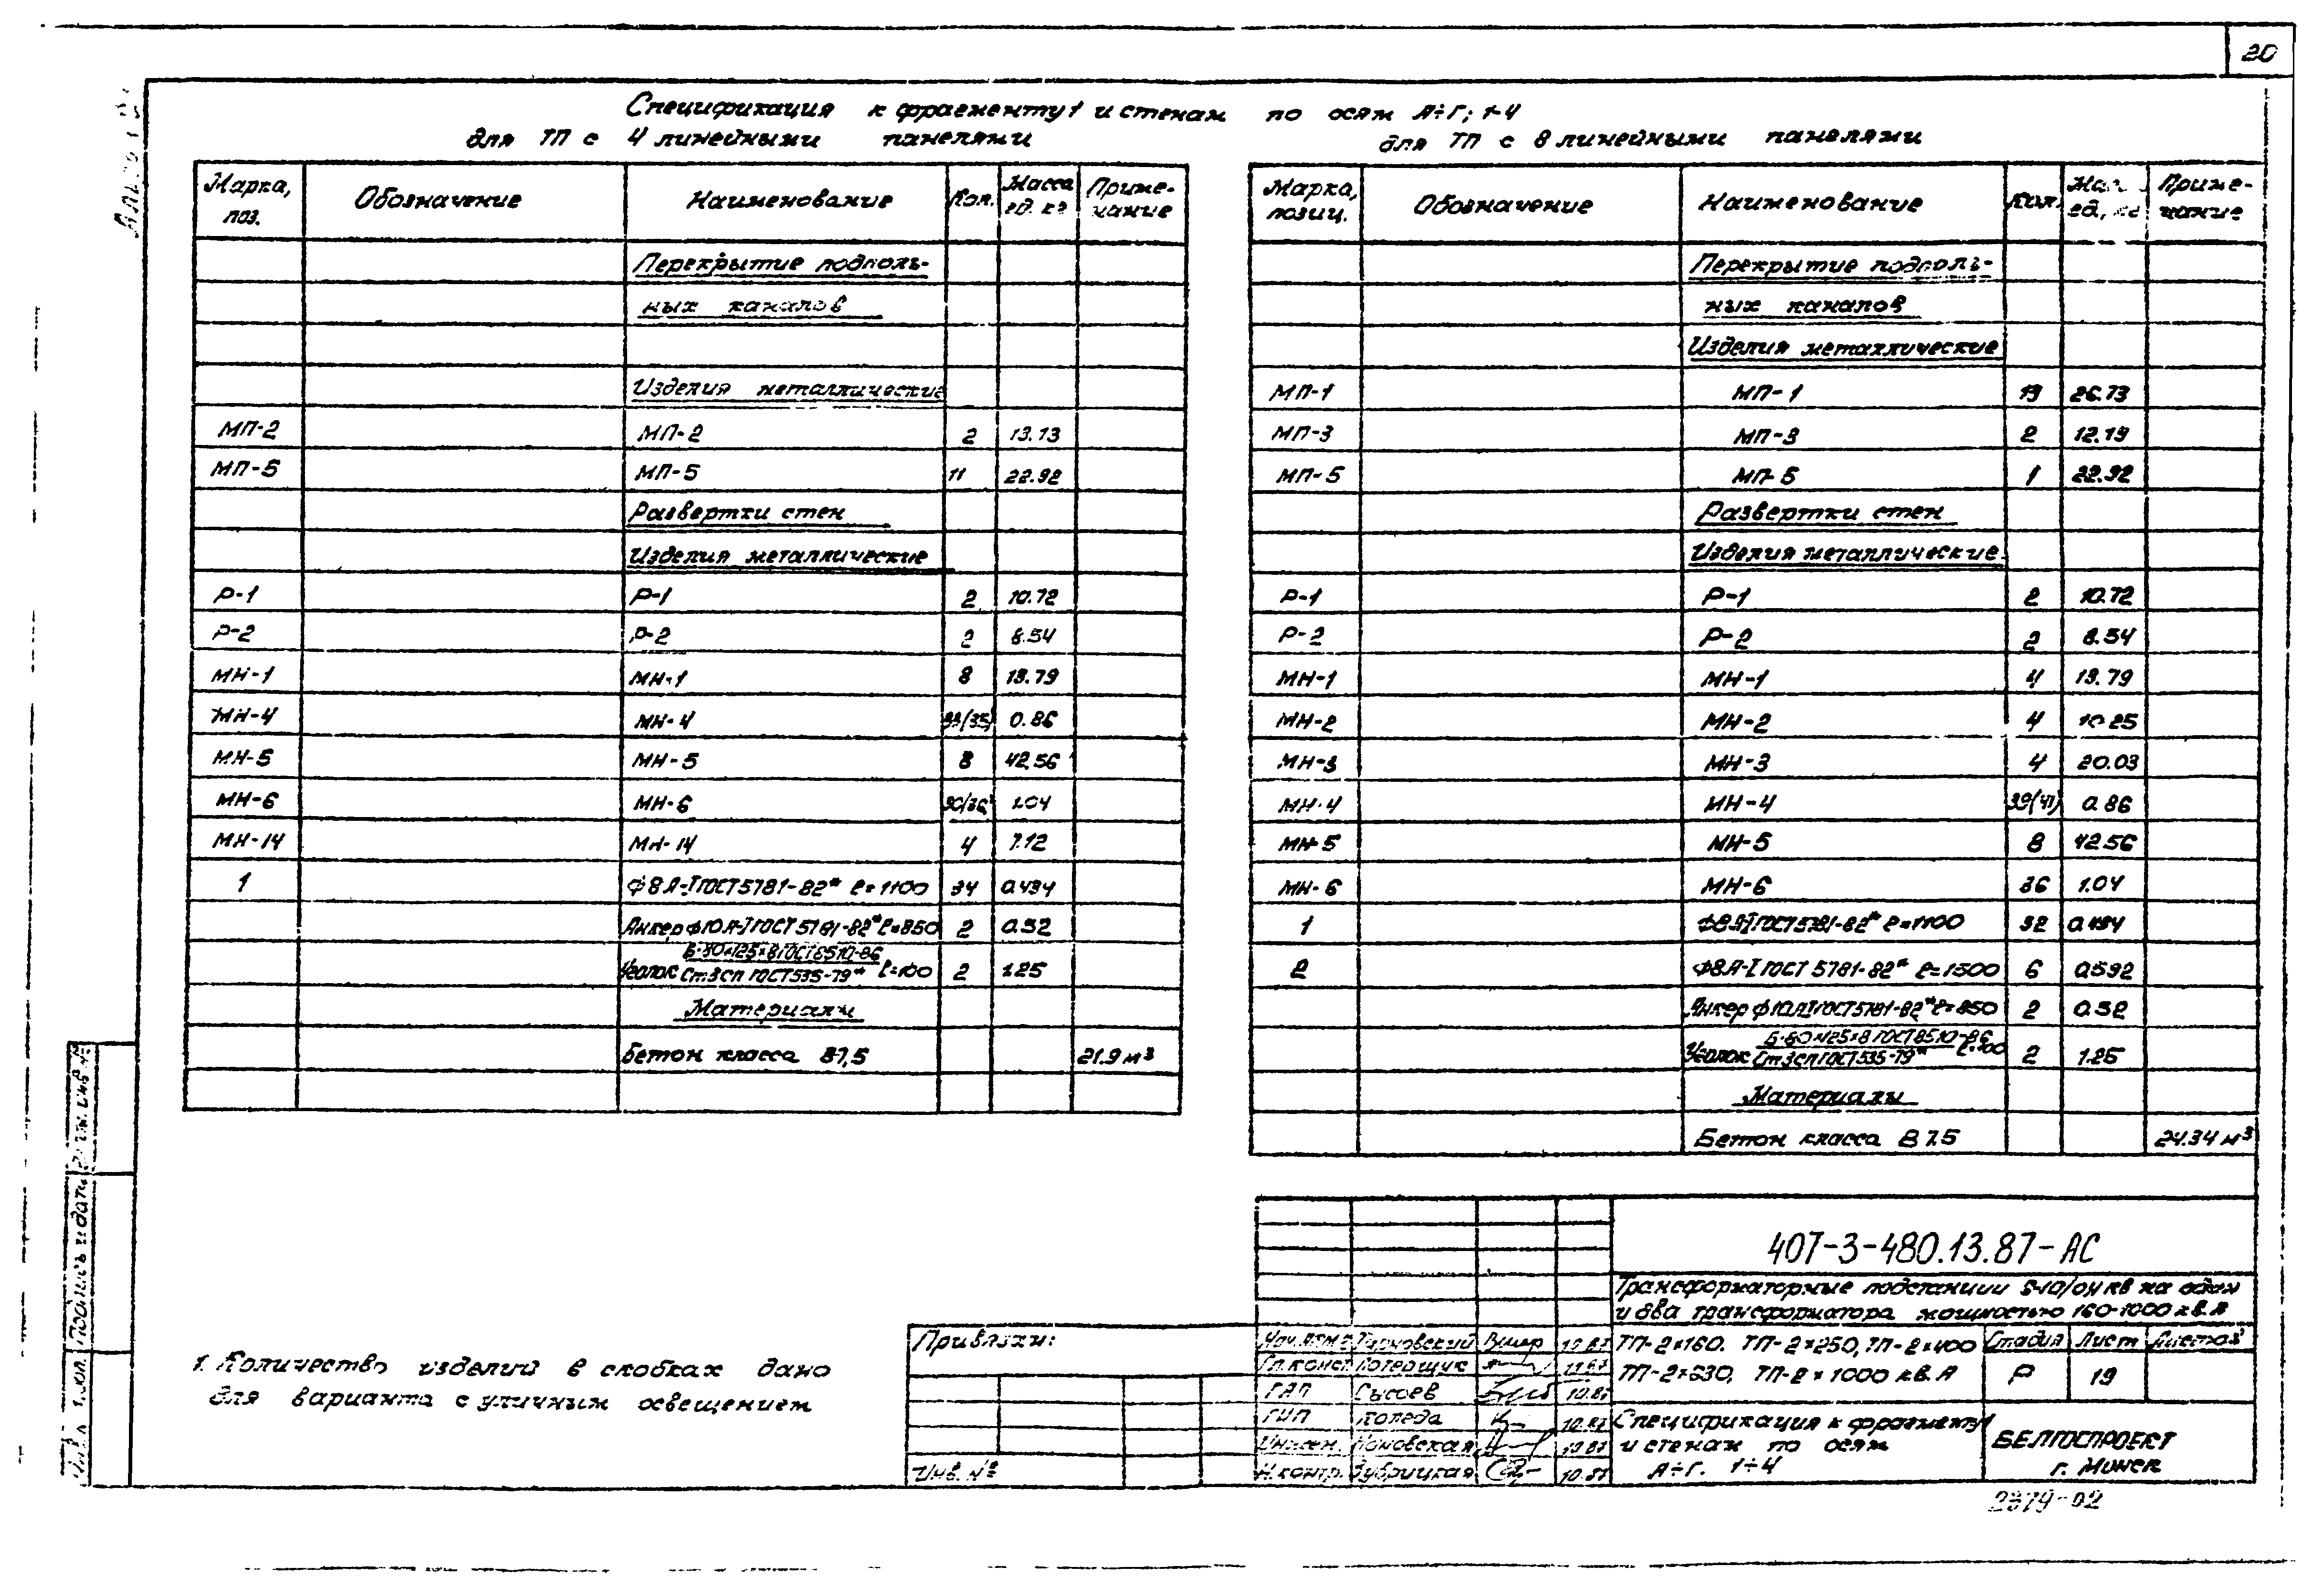 20
Спецификация к фрагменту 1 и стенам по осям А÷Г; 1-4
для ТП с 4 линейными панелями
Марка, поз. Обозначение Наименование Кол. Масса ед. кг Примечание
Перекрытие подполь-
ных каналов
Изделия металлические
МП-2 МП-2 2 13.13
МП-5 МП-5 11 22.92
Развертки стен
Изделия металлические
Р-1 Р-1 2 10.72
Р-2 Р-2 2 8.54
МН-1 МН-1 8 19.79
МН-4 МН-4 0.86
МН-5 МН-5 8 42.56
МН-6 МН-6 1.04
МН-14 МН-14 4 7.12
1 Ф8А-I ГОСТ 5781-82* ℓ=1100 34 0.434
Анкер ф10А-I ГОСТ 5781-82* ℓ=850 2 0.52
Уголок Б-80×125×8 ГОСТ 8510-86 / Ст3сп ГОСТ 535-79* ℓ=100 2 1.25
Материалы
Бетон класса В7,5 21.9 м³
для ТП с 8 линейными панелями
Марка, позиц. Обозначение Наименование Кол. ед., кг Примечание
Перекрытие подполь-
ных каналов
Изделия металлические
МП-1 МП-1 19 26.73
МП-3 МП-3 2 12.19
МП-5 МП-5 1 22.92
Развертки стен
Изделия металлические
Р-1 Р-1 2 10.72
Р-2 Р-2 2 8.54
МН-1 МН-1 4 19.79
МН-2 МН-2 4 10.25
МН-3 МН-3 4 20.03
МН-4 МН-4 39(41) 0.86
МН-5 МН-5 8 42.56
МН-6 МН-6 36 1.04
1 Ф8А-I ГОСТ 5781-82* ℓ=1100 32 0.434
2 Ф8А-I ГОСТ 5781-82* ℓ=1500 6 0.592
Анкер ф10А-I ГОСТ 5781-82* ℓ=850 2 0.52
Уголок Б-80×125×8 ГОСТ 8510-86 / Ст3сп ГОСТ 535-79* ℓ=100 2 1.25
Материалы
Бетон класса В 7.5 24.34 м³
1. Количество изделий в скобках дано
для варианта с уличным освещением
Привязки:
Инв. №
Тарновский 10.87
Гл. конст. Потерщук
ГАП Сысоев 10.87
ГИП Коледа 10.87
Инжен. Яновская 10.87
Н.контр. Зубрицкая 10.87
407-3-480.13.87-АС
Трансформаторные подстанции 6-10/0,4 кВ на один
и два трансформатора мощностью 160-1000 кВ.А
ТП-2×160, ТП-2×250, ТП-2×400
ТП-2×630, ТП-2×1000 кВ.А
Стадия Лист Листов
Р 19
Спецификация к фрагменту 1
и стенам по осям
А÷Г. 1÷4
БЕЛГОСПРОЕКТ
г. Минск
Подпись и дата